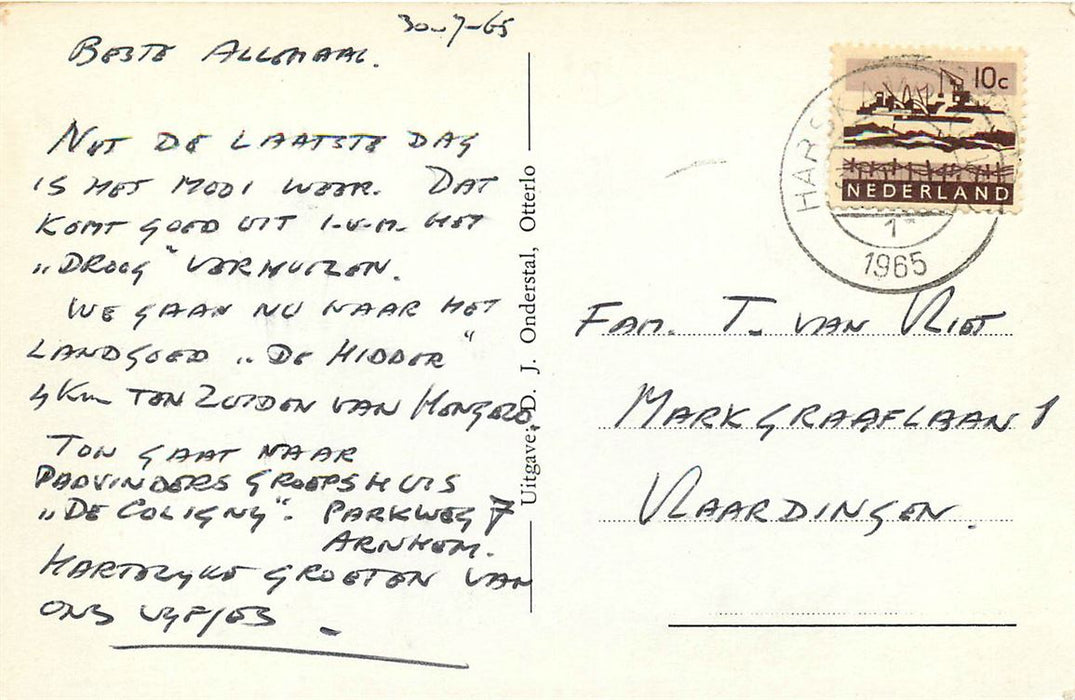 30-7-65
BESTE ALLEMAAL.
NET DE LAATSTE DAG
IS HET MOOI WEER. DAT
KOMT GOED UIT I.V.M. HET
„DROOG" VERHUIZEN.
WE GAAN NU NAAR HET
LANDGOED „DE HIDDER"
4 Km TEN ZUIDEN VAN HENGELO,
TON GAAT NAAR
PADVINDERS GROEPSHUIS
„DE COLIGNY". PARKWEG 7
ARNHEM.
HARTELYKE GROETEN VAN
ONS VYFJES
Uitgave: D. J. Onderstal, Otterlo
10c
NEDERLAND
HARSK
1
1965
FAM. T. VAN VLIET
MARKGRAAFLAAN 1
VLAARDINGEN.